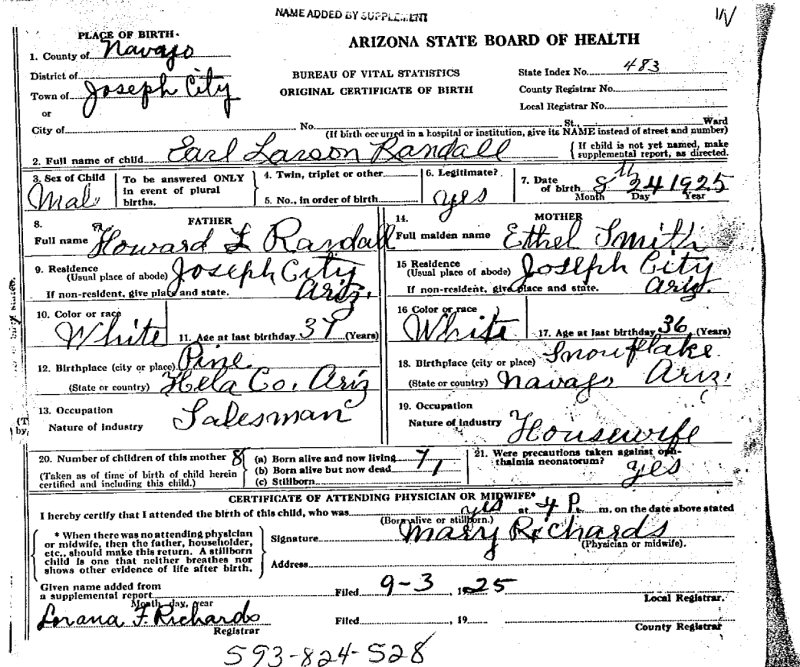 NAME ADDED BY SUPPLEMENT
PLACE OF BIRTH
ARIZONA STATE BOARD OF HEALTH
1. County of Navajo
BUREAU OF VITAL STATISTICS
State Index No. 483
District of
ORIGINAL CERTIFICATE OF BIRTH
County Registrar No.
Town of Joseph City
Local Registrar No.
or
City of No. St., Ward
(If birth occurred in a hospital or institution, give its NAME instead of street and number)
2. Full name of child Earl Larson Randall { If child is not yet named, make supplemental report, as directed.
3. Sex of Child Male
To be answered ONLY in event of plural births.
4. Twin, triplet or other
5. No., in order of birth
6. Legitimate? yes
7. Date of birth 8th 24 1925
Month Day Year
8. FATHER
Full name Howard L Randall
14. MOTHER
Full maiden name Ethel Smith
9. Residence (Usual place of abode) Joseph City
If non-resident, give place and state. Ariz.
15 Residence (Usual place of abode) Joseph City
If non-resident, give place and state. Ariz.
10. Color or race White
11. Age at last birthday 37 (Years)
16 Color or race White
17. Age at last birthday 36 (Years)
12. Birthplace (city or place) Pine
(State or country) Hela Co. Ariz
18. Birthplace (city or place) Snowflake
(State or country) Navajo Ariz.
13. Occupation
Nature of Industry Salesman
19. Occupation
Nature of Industry Housewife
20. Number of children of this mother 8
(Taken as of time of birth of child herein certified and including this child.)
(a) Born alive and now living 7
(b) Born alive but now dead 1
(c) Stillborn
21. Were precautions taken against ophthalmia neonatorum? yes
CERTIFICATE OF ATTENDING PHYSICIAN OR MIDWIFE*
I hereby certify that I attended the birth of this child, who was yes at 4 P. m. on the date above stated
(Born alive or stillborn.)
* When there was no attending physician or midwife, then the father, householder, etc., should make this return. A stillborn child is one that neither breathes nor shows other evidence of life after birth.
Signature Mary Richards
(Physician or midwife).
Address
Given name added from a supplemental report
Month, day, year
Filed 9-3, 1925
Local Registrar.
Lorana F. Richards
Registrar
Filed , 19
County Registrar
593-824-528